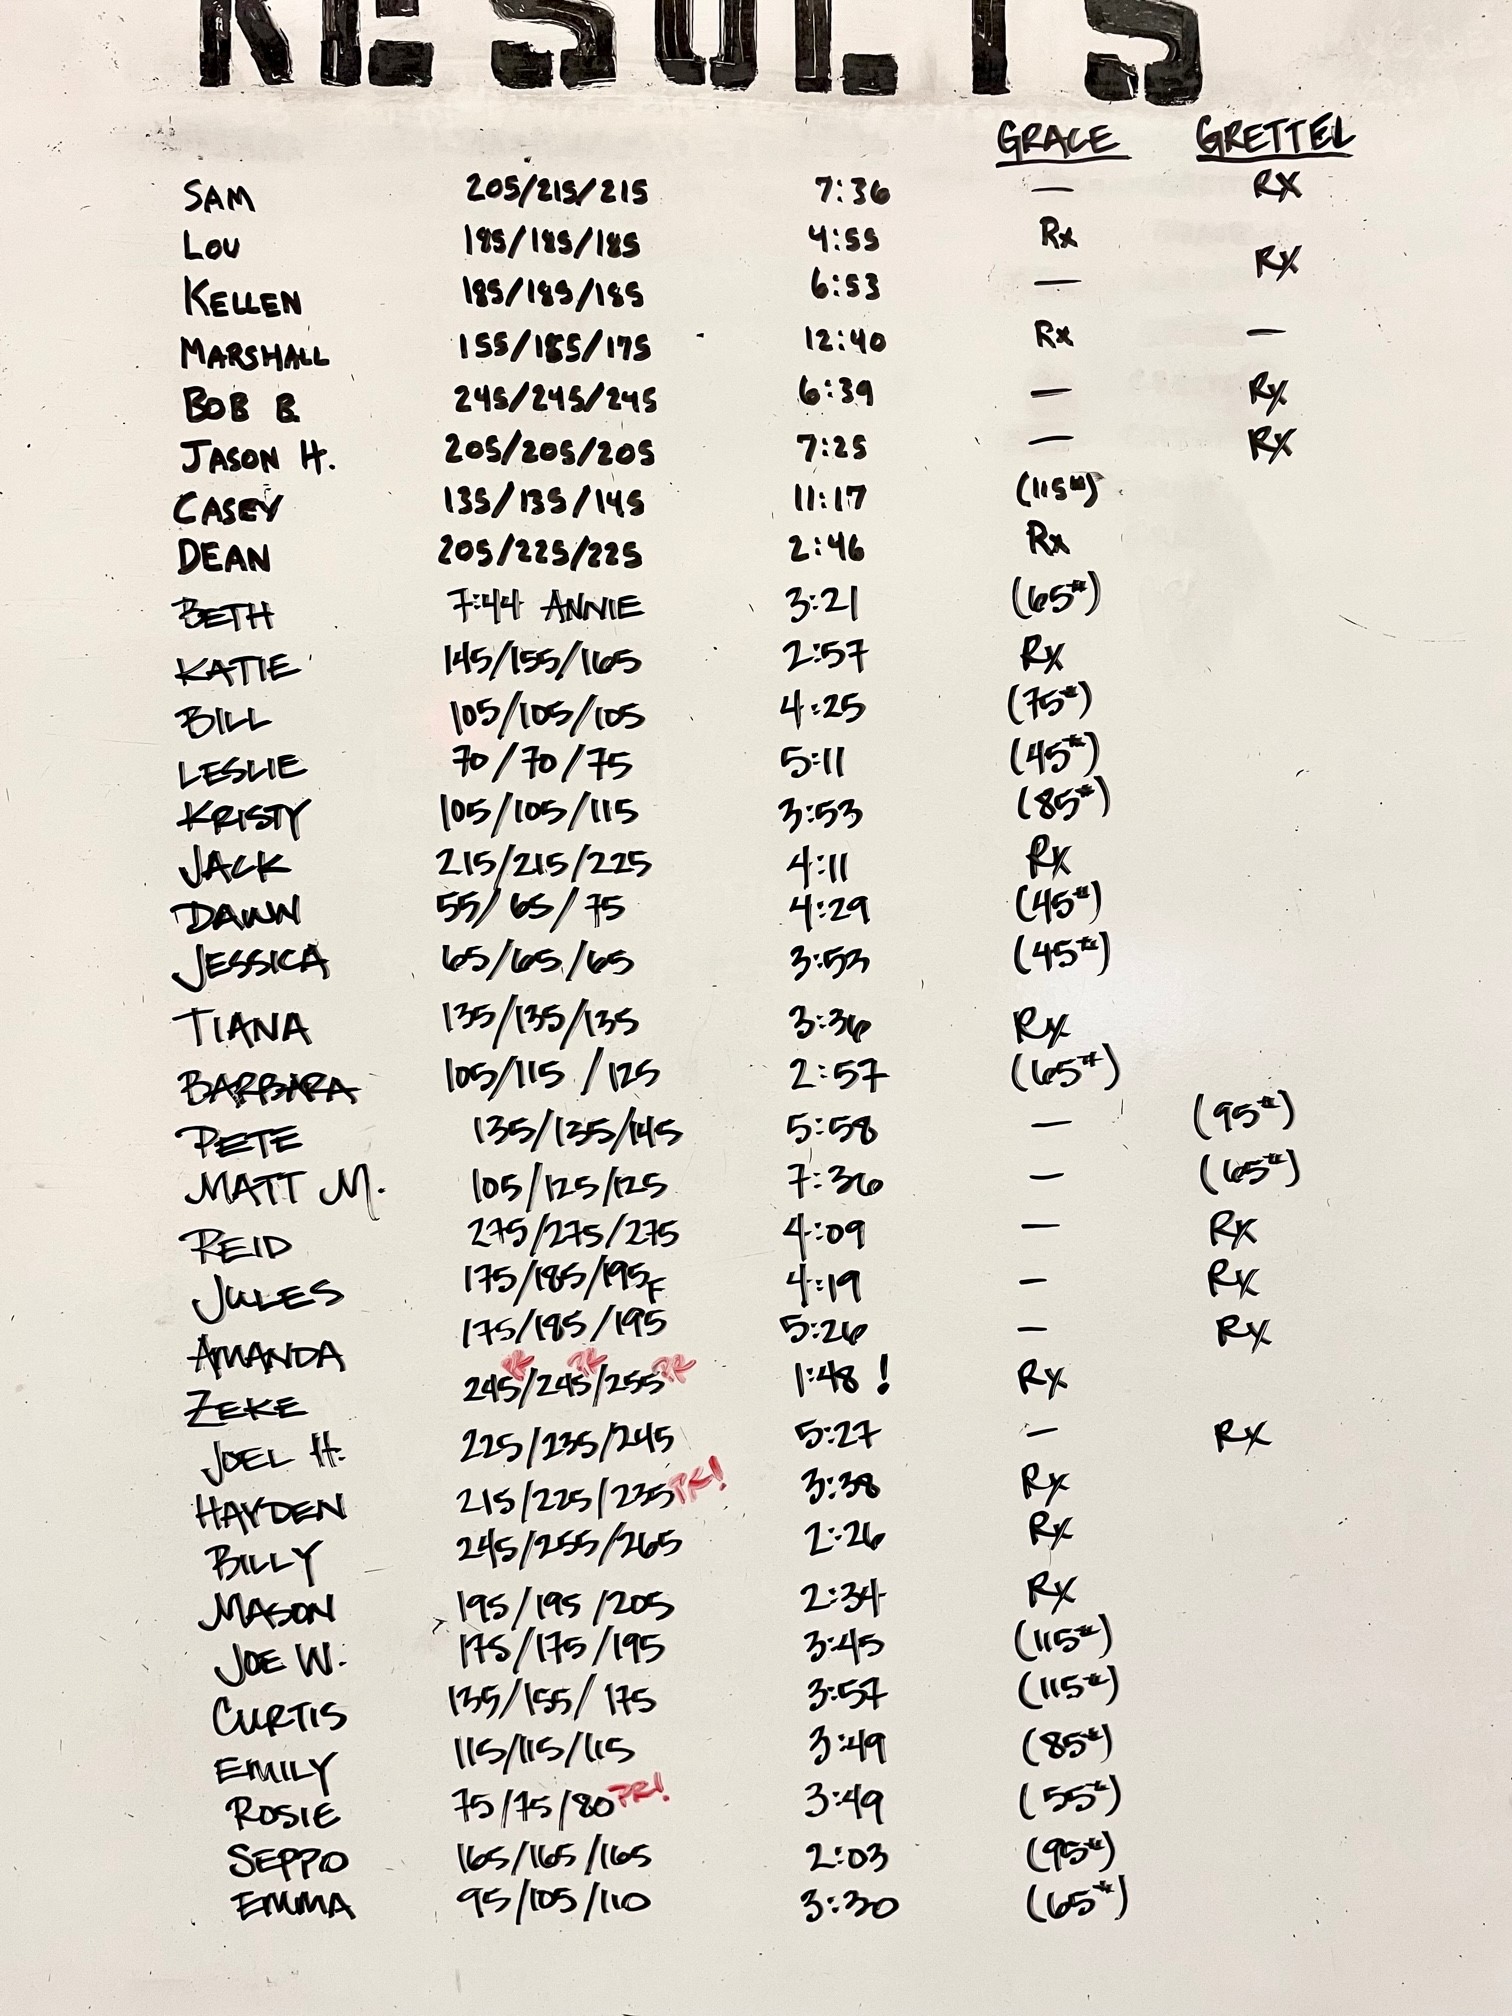 RESULTS
GRACE GRETTEL
SAM 205/215/215 7:36 — RX
LOU 185/185/185 4:55 Rx
KELLEN 185/185/185 6:53 — RX
MARSHALL 155/165/175 12:40 Rx —
BOB B 245/245/245 6:39 — Rx
JASON H. 205/205/205 7:25 — RX
CASEY 135/135/145 11:17 (115#)
DEAN 205/225/225 2:46 Rx
BETH 7:44 ANNIE 3:21 (65#)
KATIE 145/155/165 2:57 Rx
BILL 105/105/105 4:25 (75#)
LESLIE 70/70/75 5:11 (45#)
KRISTY 105/105/115 3:53 (85#)
JACK 215/215/225 4:11 Rx
DAWN 55/65/75 4:29 (45#)
JESSICA 65/65/65 3:53 (45#)
TIANA 135/135/135 3:36 Rx
BARBARA 105/115/125 2:57 (65#)
PETE 135/135/145 5:58 — (95#)
MATT M. 105/125/125 7:36 — (65#)
REID 275/275/275 4:09 — Rx
JULES 175/185/195F 4:19 — Rx
AMANDA 175/185/195 5:26 — Rx
ZEKE 245PR/245PR/255PR 1:48! Rx
JOEL H. 225/235/245 5:27 — Rx
HAYDEN 215/225/235PR! 3:38 Rx
BILLY 245/255/265 2:26 Rx
MASON 195/195/205 2:34 Rx
JOE W. 175/175/195 3:45 (115#)
CURTIS 135/155/175 3:57 (115#)
EMILY 115/115/115 3:49 (85#)
ROSIE 75/75/80PR! 3:49 (55#)
SEPPO 165/165/165 2:03 (95#)
EMMA 95/105/110 3:30 (65#)